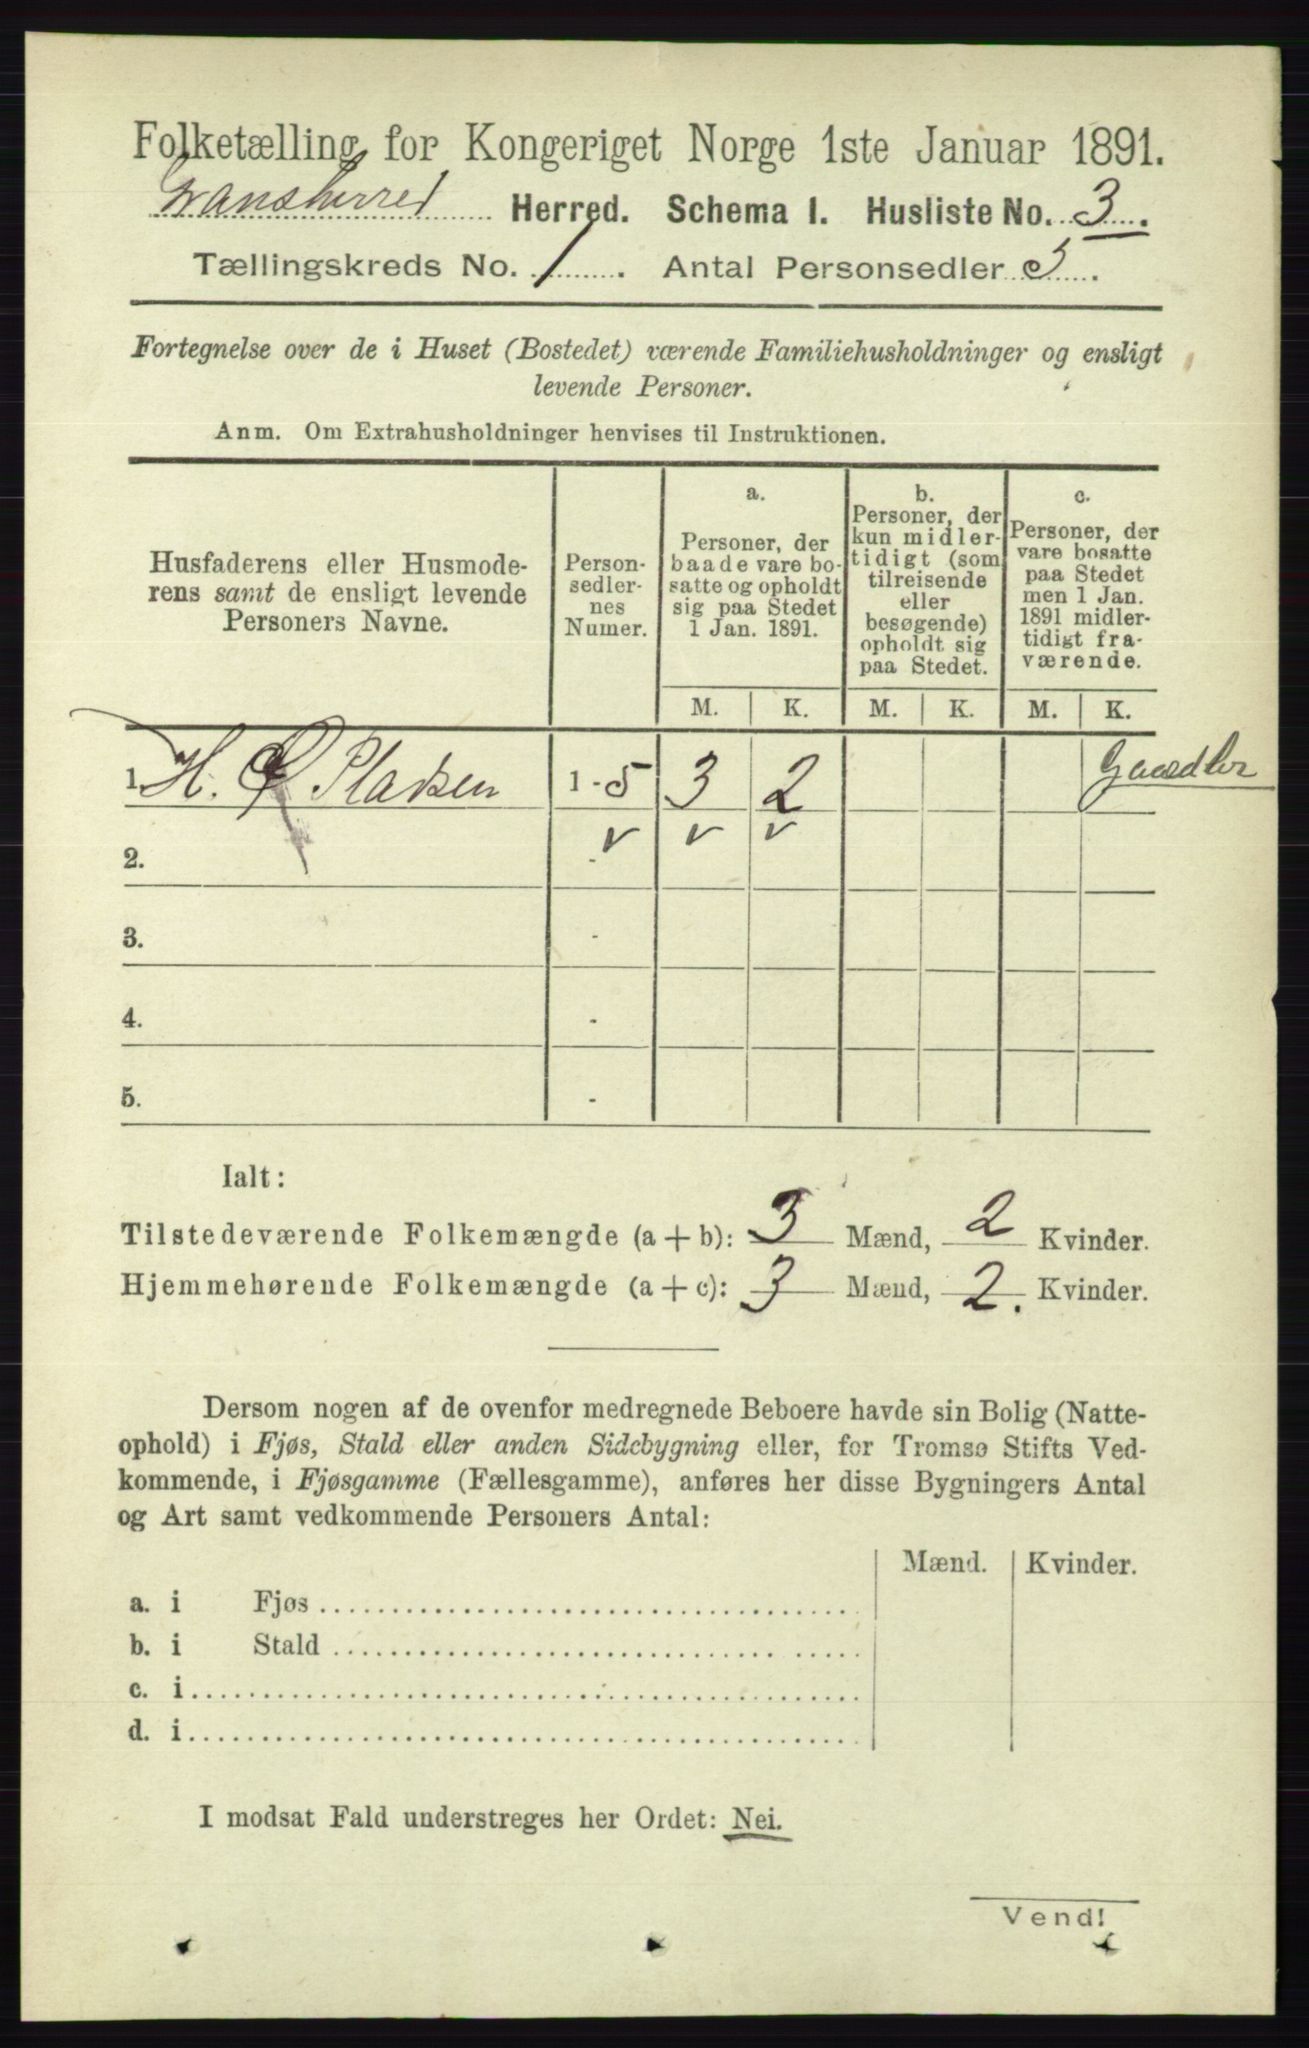 Folketælling for Kongeriget Norge 1ste Januar 1891.
Gransherred Herred. Schema I. Husliste No. 3.
Tællingskreds No. 1. Antal Personsedler 5.
Fortegnelse over de i Huset (Bostedet) værende Familiehusholdninger og ensligt
levende Personer.
Anm. Om Extrahusholdninger henvises til Instruktionen.
Husfaderens eller Husmode-
rens samt de ensligt levende
Personers Navne.
Person-
sedler-
nes
Numer.
a.
Personer, der
baade vare bo-
satte og opholdt
sig paa Stedet
1 Jan. 1891.
b.
Personer, der
kun midler-
tidigt (som
tilreisende
eller
besøgende)
opholdt sig
paa Stedet.
c.
Personer, der
vare bosatte
paa Stedet
men 1 Jan.
1891 midler-
tidigt fra-
værende.
M. K. M. K. M. K.
1. H. Pladsen 1 - 5 3 2
2. -
3. -
4. -
5. -
Ialt:
Tilstedeværende Folkemængde (a + b): 3 Mænd, 2 Kvinder.
Hjemmehørende Folkemængde (a + c): 3 Mænd, 2. Kvinder.
Dersom nogen af de ovenfor medregnede Beboere havde sin Bolig (Natte-
ophold) i Fjøs, Stald eller anden Sidebygning eller, for Tromsø Stifts Ved-
kommende, i Fjøsgamme (Fællesgamme), anføres her disse Bygningers Antal
og Art samt vedkommende Personers Antal:
Mænd. Kvinder.
a. i Fjøs
b. i Stald
c. i
d. i
I modsat Fald understreges her Ordet: Nei.
Vend!